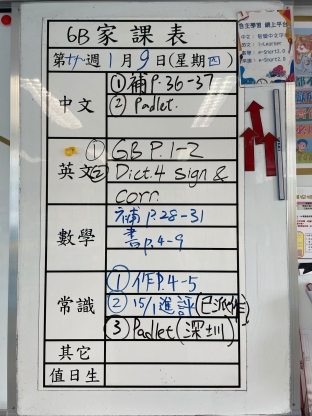 6B 家課表
第十八週 1 月 9 日(星期四)
中文
① 補P.36-37
② Padlet.
英文
① GB P.1-2
② Dict.4 sign &
corr.
數學
補P.28-31
書P.4-9
常識
① 作P.4-5
② 15/1 進評(已派作)
③ Padlet (深圳)
其它
值日生
自主學習 網上平台